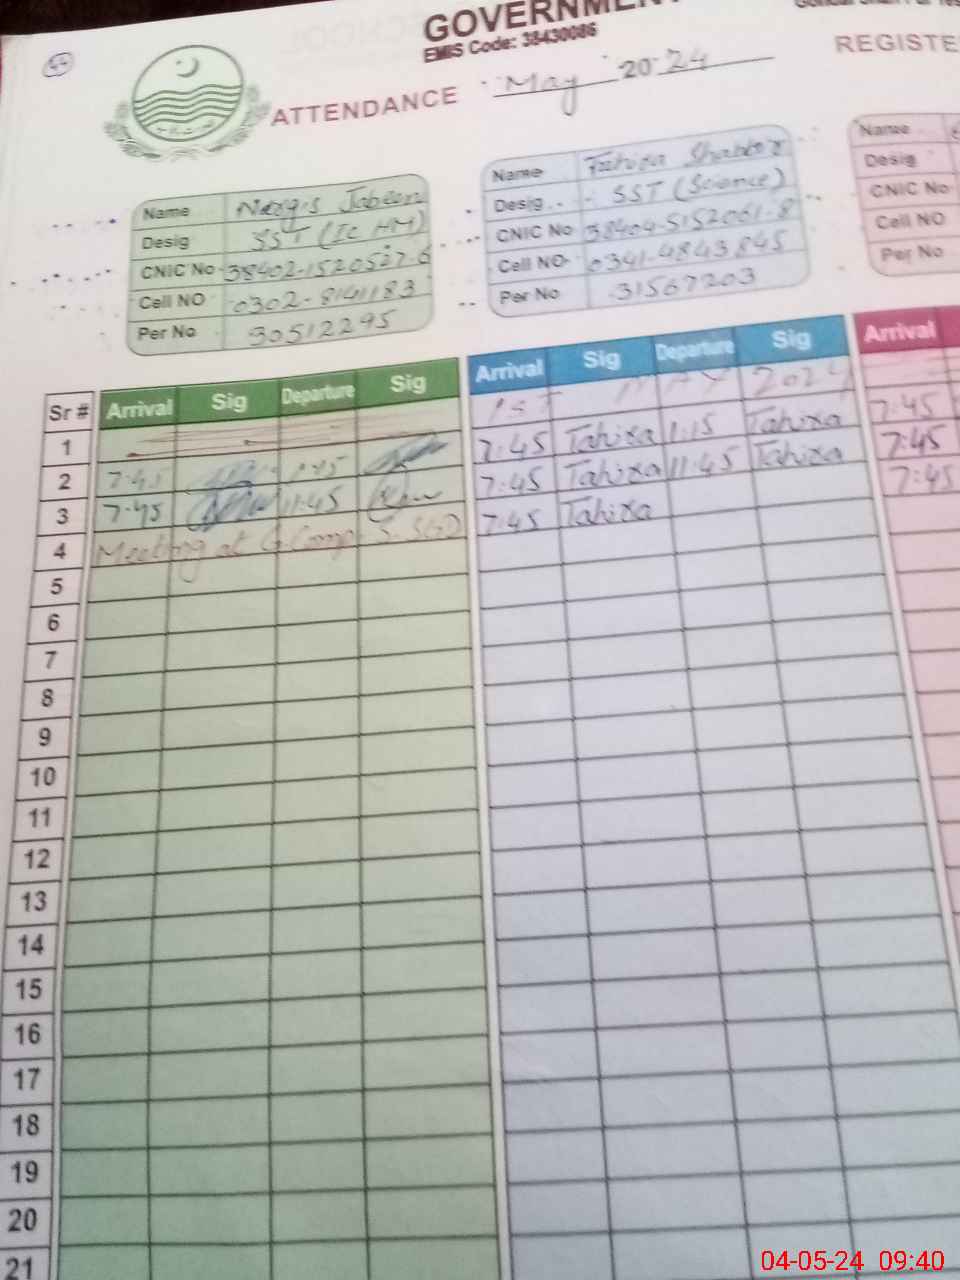 GOVERNMEN
EMIS Code: 38430086
ATTENDANCE May 2024 REGISTE
Name Nargis Jabeen
Desig SST (Ic HM)
CNIC No 38402-1520527-6
Cell NO 0302-8141183
Per No 30512295
Name Tahira Shabbir
Desig SST (Science)
CNIC No 38404-5152061-8
Cell NO 0341-4843845
Per No 31567203
Name
Desig
CNIC No
Cell NO
Per No
Sr # Arrival Sig Departure Sig Arrival Sig Departure Sig Arrival
1 1st MAY 2024
2 7:45 1:15 7:45 Tahira 1:15 Tahira 7:45
3 7:45 11:45 7:45 Tahira 11:45 Tahira 7:45
4 Meeting at G. Comp. S. SGD 7:45 Tahira 7:45
5
6
7
8
9
10
11
12
13
14
15
16
17
18
19
20
21
04-05-24 09:40